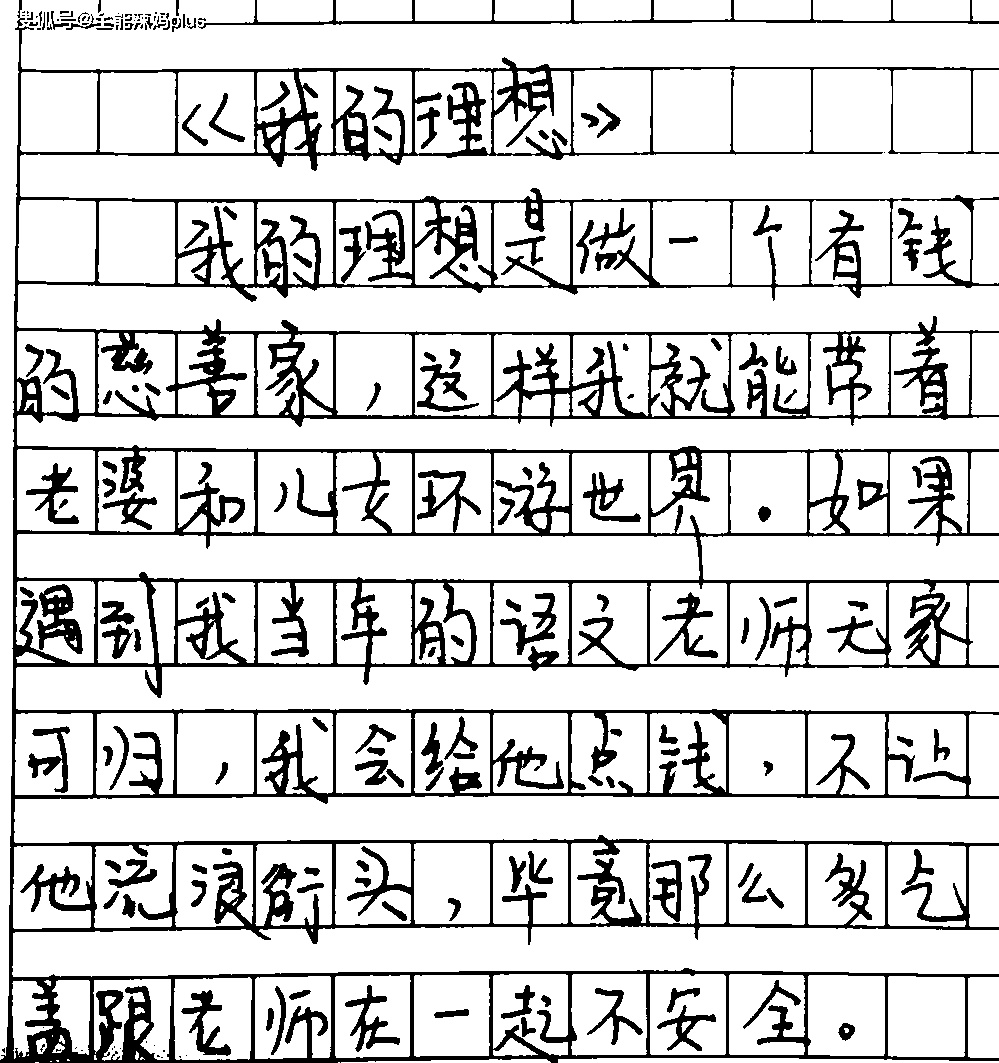 搜狐号@全能辣妈plus
《我的理想》
我的理想是做一个有钱
的慈善家,这样我就能带着
老婆和儿女环游世界.如果
遇到我当年的语文老师无家
可归,我会给他点钱,不让
他流浪街头,毕竟那么多乞
盖跟老师在一起不安全。